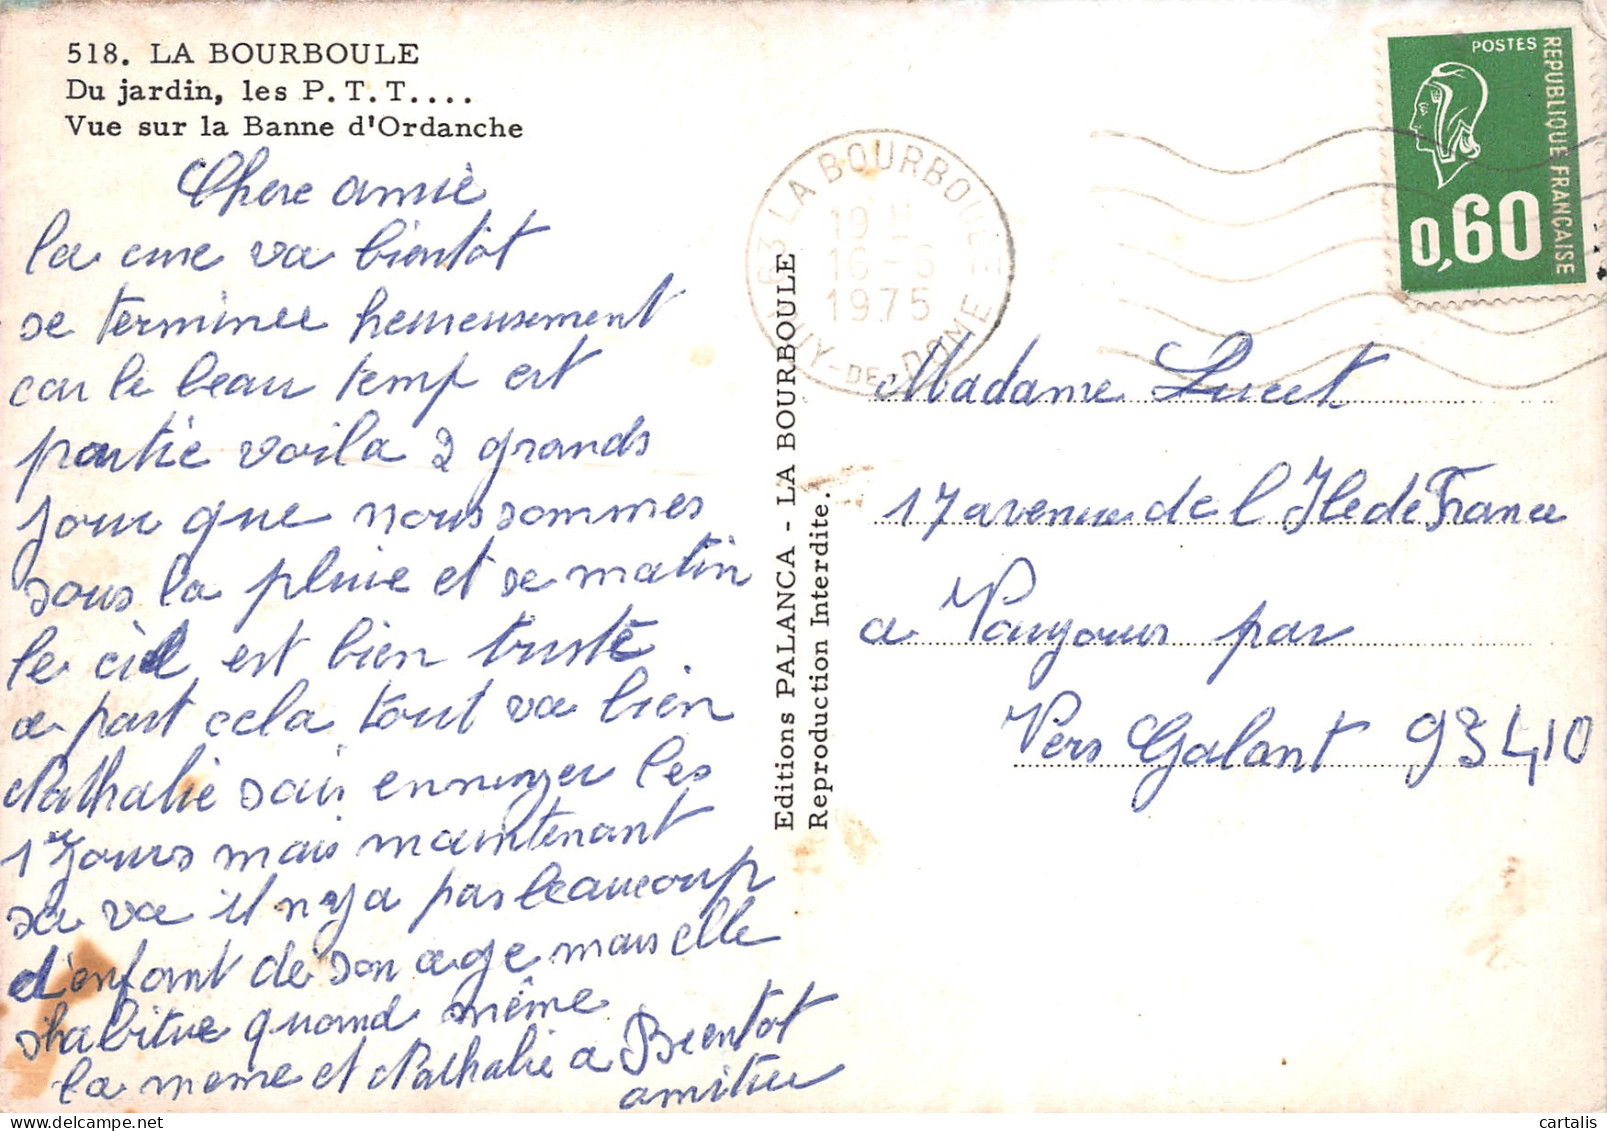 518. LA BOURBOULE
Du jardin, les P.T.T....
Vue sur la Banne d'Ordanche
Chere amie
la cure va bientôt
se terminee heureusement
car le beau temp est
partie voila 2 grands
jour que nous sommes
sous la pluie et se matin
le ciel est bien triste
a part cela tout va bien
Nathalie sais ennuyer les
1er jours mais maintenant
sa va il n'y a pas beaucoup
d'enfant de son age mais elle
s'habitue quand même
la meme et Nathalie a Bientot
amitiee
Editions PALANCA - LA BOURBOULE
Reproduction Interdite.
63 LA BOURBOULE
19 H
16-6
1975
PUY-DE-DOME
POSTES
REPUBLIQUE FRANCAISE
0,60
Madame Lucet
17 avenue de l Ile de France
a Vaujours par
Vers Galant 93410
cartalis
delcampe.net